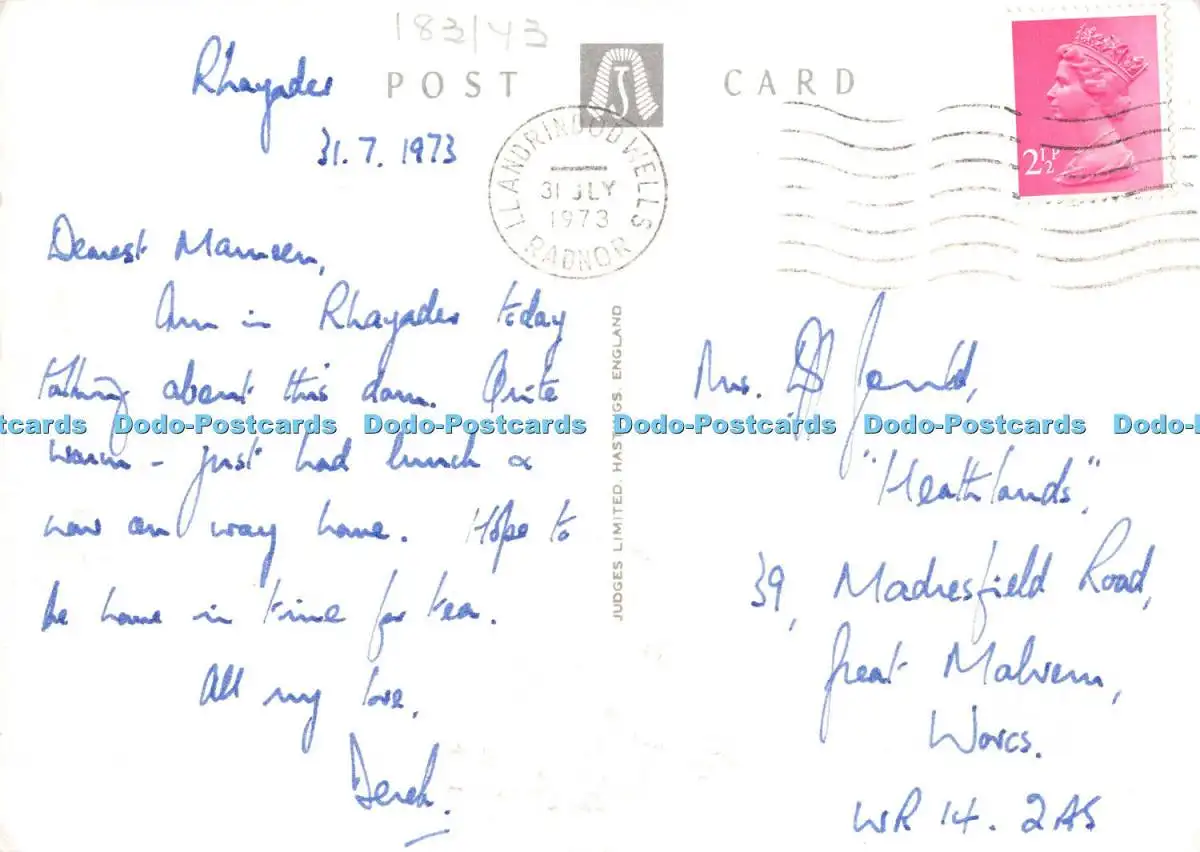 183/43
Rhayader
31.7.1973
POST CARD
J
LLANDRINDOD WELLS
31 JLY
1973
RADNOR
2½P
Dearest Maureen,
Am in Rhayader today
talking about this dam. Quite
warm - just had lunch &
now on way home. Hope to
be home in time for tea.
All my love,
Derek.
JUDGES LIMITED, HASTINGS, ENGLAND
Mrs.
"Heathlands",
39, Madresfield Road,
Great Malvern,
Worcs.
WR 14. 2AS
Dodo-Postcards Dodo-Postcards Dodo-Postcards Dodo-Postcards